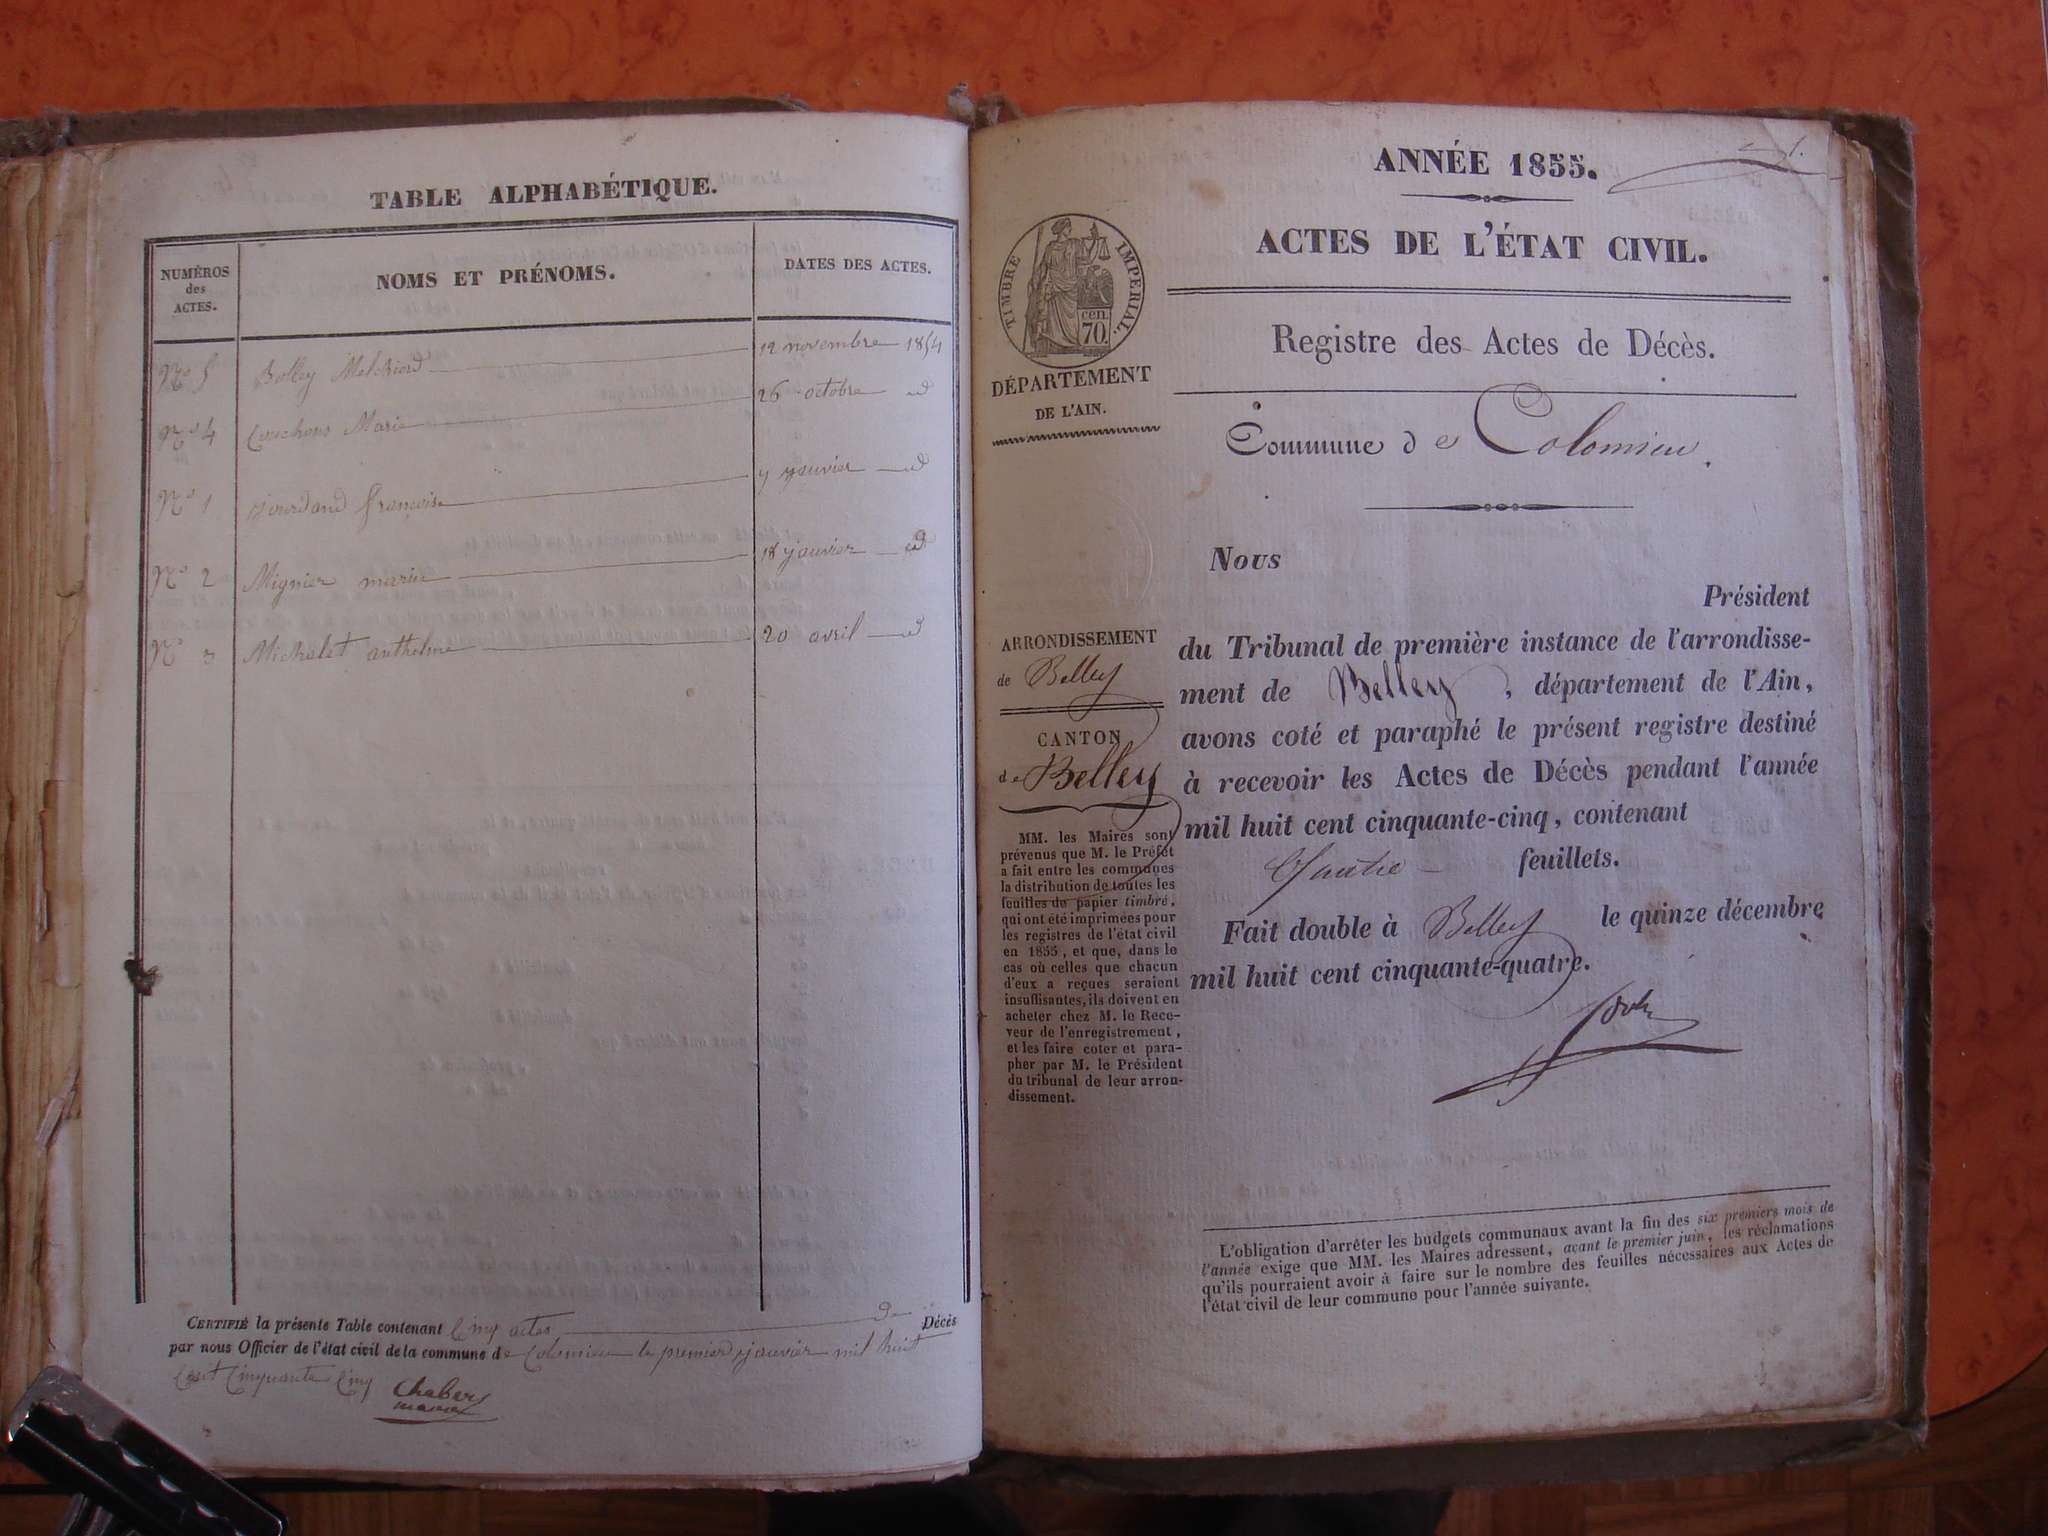 TABLE ALPHABÉTIQUE.
NUMÉROS
des
ACTES.
NOMS ET PRÉNOMS.
DATES DES ACTES.
No 5 Bolley Melchiord 12 novembre 1854
No 4 Couchons Marie 26 octobre id
No 1 Jourdand françoise 7 janvier id
No 2 Mignier marie 18 janvier id
No 3 Michalet anthelme 20 avril id
CERTIFIÉ la présente Table contenant Cinq actes De Décès
par nous Officier de l'état civil de la commune de Colomieu le premier janvier mil huit
Cent Cinquante Cinq
maire
1.
ANNÉE 1855.
ACTES DE L'ÉTAT CIVIL.
TIMBRE IMPERIAL.
cen.
70.
Registre des Actes de Décès.
DÉPARTEMENT
DE L'AIN.
Commune de Colomieu.
Nous
Président
du Tribunal de première instance de l'arrondisse-
ment de Belley, département de l'Ain,
avons coté et paraphé le présent registre destiné
à recevoir les Actes de Décès pendant l'année
mil huit cent cinquante-cinq, contenant
feuillets.
Fait double à Belley le quinze décembre
mil huit cent cinquante-quatre.
ARRONDISSEMENT
de Belley
CANTON
de Belley
MM. les Maires sont
prévenus que M. le Préfet
a fait entre les communes
la distribution de toutes les
feuilles de papier timbré,
qui ont été imprimées pour
les registres de l'état civil
en 1855, et que, dans le
cas où celles que chacun
d'eux a reçues seraient
insuffisantes, ils doivent en
acheter chez M. le Rece-
veur de l'enregistrement,
et les faire coter et para-
pher par M. le Président
du tribunal de leur arron-
dissement.
L'obligation d'arrêter les budgets communaux avant la fin des six premiers mois de
l'année exige que MM. les Maires adressent, avant le premier juin, les réclamations
qu'ils pourraient avoir à faire sur le nombre des feuilles nécessaires aux Actes de
l'état civil de leur commune pour l'année suivante.